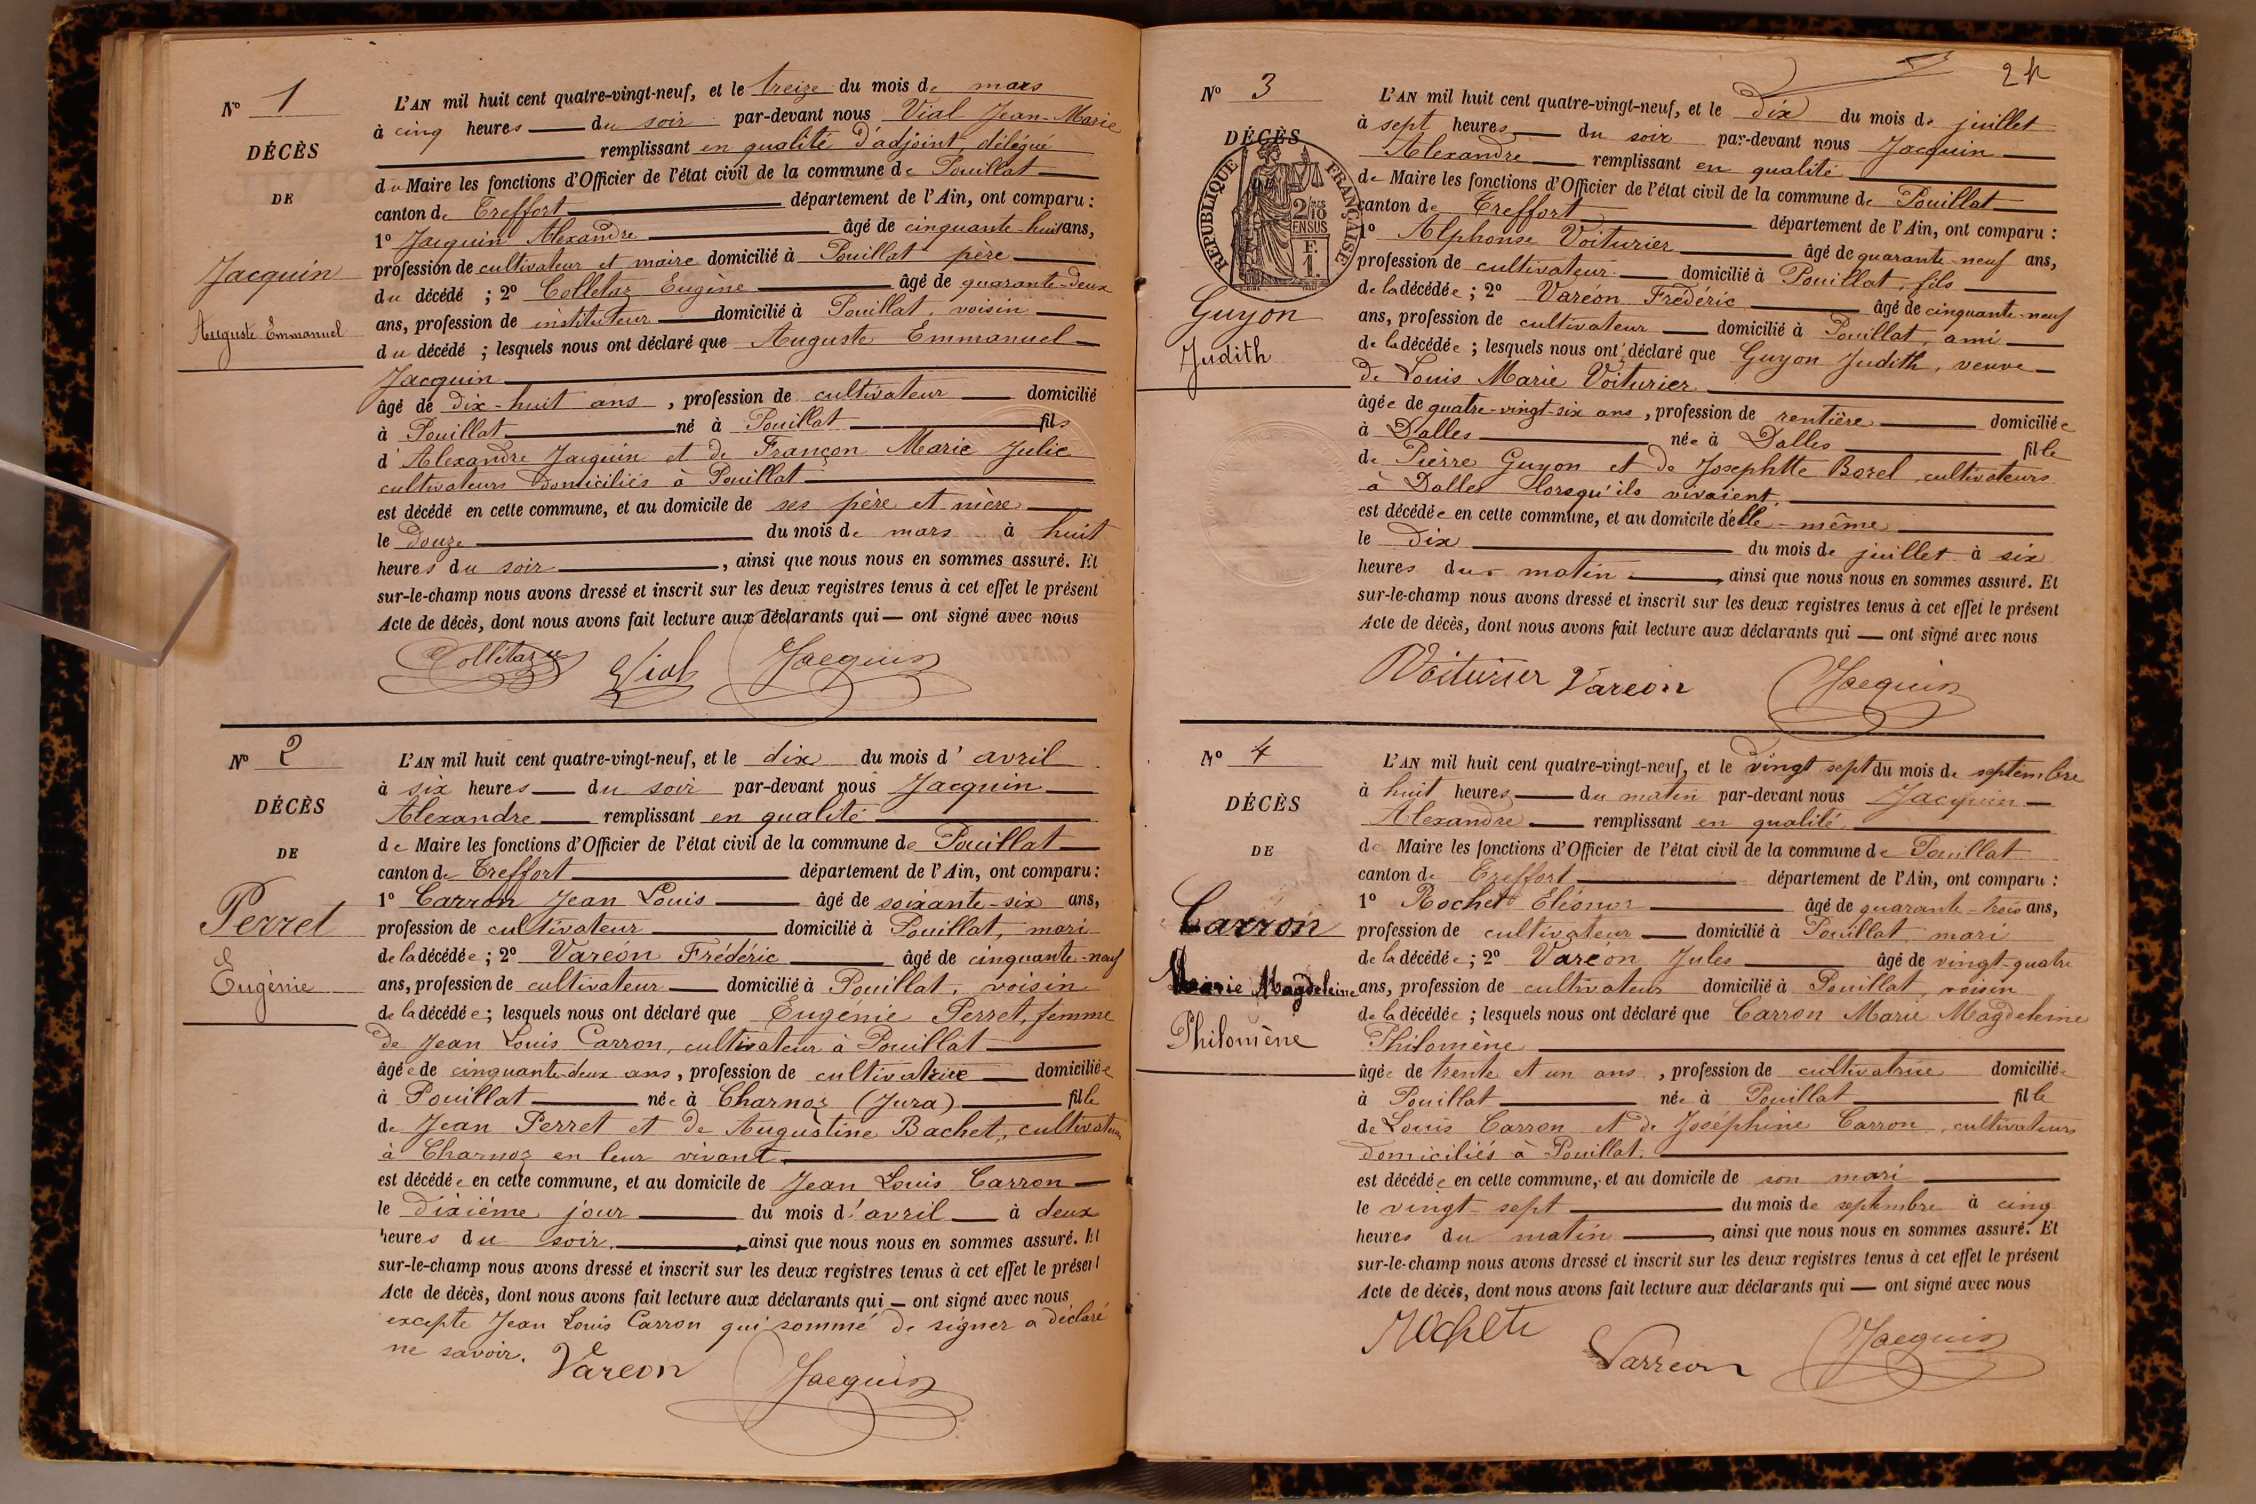 N° 1
DÉCÈS
DE
Jacquin
Auguste Emmanuel
L'AN mil huit cent quatre-vingt-neuf, et le treize du mois de mars
à cinq heures du soir par-devant nous Vial Jean-Marie
remplissant en qualité d'adjoint, délégué
du Maire les fonctions d'Officier de l'état civil de la commune de Pouillat
canton de Treffort département de l'Ain, ont comparu :
1° Jacquin Alexandre âgé de cinquante-huit ans,
profession de cultivateur et maire domicilié à Pouillat père
du décédé ; 2° Colletaz Eugène âgé de quarante-deux
ans, profession de instituteur domicilié à Pouillat, voisin
du décédé ; lesquels nous ont déclaré que Auguste Emmanuel
Jacquin
âgé de dix-huit ans, profession de cultivateur domicilié
à Pouillat né à Pouillat fils
d'Alexandre Jacquin et de Françon Marie Julie
cultivateurs domiciliés à Pouillat
est décédé en cette commune, et au domicile de ses père et mère
le douze du mois de mars à huit
heures du soir, ainsi que nous nous en sommes assuré. Et
sur-le-champ nous avons dressé et inscrit sur les deux registres tenus à cet effet le présent
Acte de décès, dont nous avons fait lecture aux déclarants qui — ont signé avec nous
Colletaz Vial Jacquin
N° 2
DÉCÈS
DE
Perret
Eugénie
L'AN mil huit cent quatre-vingt-neuf, et le dix du mois d'avril
à six heures du soir par-devant nous Jacquin
Alexandre remplissant en qualité
de Maire les fonctions d'Officier de l'état civil de la commune de Pouillat
canton de Treffort département de l'Ain, ont comparu :
1° Carron Jean Louis âgé de soixante-six ans,
profession de cultivateur domicilié à Pouillat, mari
de la décédée ; 2° Varéon Frédéric âgé de cinquante-neuf
ans, profession de cultivateur domicilié à Pouillat, voisin
de la décédée ; lesquels nous ont déclaré que Eugénie Perret, femme
de Jean Louis Carron, cultivateur à Pouillat
âgée de cinquante-deux ans, profession de cultivatrice domiciliée
à Pouillat née à Charnoz (Jura) fille
de Jean Perret et de Augustine Bachet, cultivateurs
à Charnoz en leur vivant
est décédée en cette commune, et au domicile de Jean Louis Carron
le dixième jour du mois d'avril à deux
heures du soir, ainsi que nous nous en sommes assuré. Et
sur-le-champ nous avons dressé et inscrit sur les deux registres tenus à cet effet le présent
Acte de décès, dont nous avons fait lecture aux déclarants qui — ont signé avec nous
excepté Jean Louis Carron qui sommé de signer a déclaré
ne savoir. Varéon Jacquin
N° 3
DÉCÈS
RÉPUBLIQUE FRANÇAISE
2/10 EN SUS
F. 1.
Guyon
Judith
L'AN mil huit cent quatre-vingt-neuf, et le dix du mois de juillet
à sept heures du soir par-devant nous Jacquin
Alexandre remplissant en qualité
de Maire les fonctions d'Officier de l'état civil de la commune de Pouillat
canton de Treffort département de l'Ain, ont comparu :
1° Alphonse Voiturier âgé de quarante-neuf ans,
profession de cultivateur domicilié à Pouillat, fils
de la décédée ; 2° Varéon Frédéric âgé de cinquante-neuf
ans, profession de cultivateur domicilié à Pouillat, ami
de la décédée ; lesquels nous ont déclaré que Guyon Judith, veuve
de Louis Marie Voiturier
âgée de quatre-vingt-six ans, profession de rentière domiciliée
à Dalles née à Dalles fille
de Pierre Guyon et de Josephtte Borel, cultivateurs
à Dalles lorsqu'ils vivaient,
est décédée en cette commune, et au domicile d'elle-même
le dix du mois de juillet à six
heures du matin, ainsi que nous nous en sommes assuré. Et
sur-le-champ nous avons dressé et inscrit sur les deux registres tenus à cet effet le présent
Acte de décès, dont nous avons fait lecture aux déclarants qui — ont signé avec nous
Voiturier Varéon Jacquin
N° 4
DÉCÈS
DE
Carron
Marie Magdeleine
Philomène
L'AN mil huit cent quatre-vingt-neuf, et le vingt sept du mois de septembre
à huit heures du matin par-devant nous Jacquin
Alexandre remplissant en qualité
de Maire les fonctions d'Officier de l'état civil de la commune de Pouillat
canton de Treffort département de l'Ain, ont comparu :
1° Rochet Eléonor âgé de quarante-trois ans,
profession de cultivateur domicilié à Pouillat mari
de la décédée ; 2° Varéon Jules âgé de vingt-quatre
ans, profession de cultivateur domicilié à Pouillat, voisin
de la décédée ; lesquels nous ont déclaré que Carron Marie Magdeleine
Philomène
âgée de trente et un ans, profession de cultivatrice domiciliée
à Pouillat née à Pouillat fille
de Louis Carron et de Joséphine Carron, cultivateurs
domiciliés à Pouillat.
est décédée en cette commune, et au domicile de son mari
le vingt-sept du mois de septembre à cinq
heures du matin, ainsi que nous nous en sommes assuré. Et
sur-le-champ nous avons dressé et inscrit sur les deux registres tenus à cet effet le présent
Acte de décès, dont nous avons fait lecture aux déclarants qui — ont signé avec nous
Rochet Varreon Jacquin